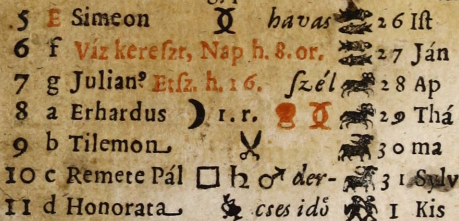 5 E Simeon havas 26 Iſt
6 f Víz kereſzt, Nap h. 8. or. 27 Ján
7 g Julianꝰ Etſz. h. 16. ſzél 28 Ap
8 a Erhardus ☽ 1. r. 29 Thá
9 b Tilemon 30 ma
10 c Remete Pál □ ♄ ♂ der- 31 Sylv
11 d Honorata cses idő 1 Kis